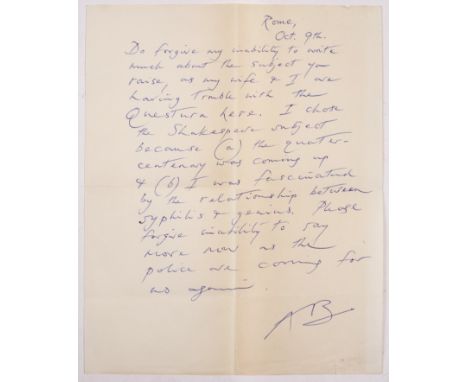 Rome,
Oct. 9th.
Do forgive my inability to write
much about the subject you
raise, as my wife & I are
having trouble with the
Questura here. I chose
the Shakespeare subject
because (a) the quater-
centenary was coming up
& (b) I was fascinated
by the relationship between
syphilis & genius. Please
forgive inability to say
more now as the
police are coming for
us again.
AB